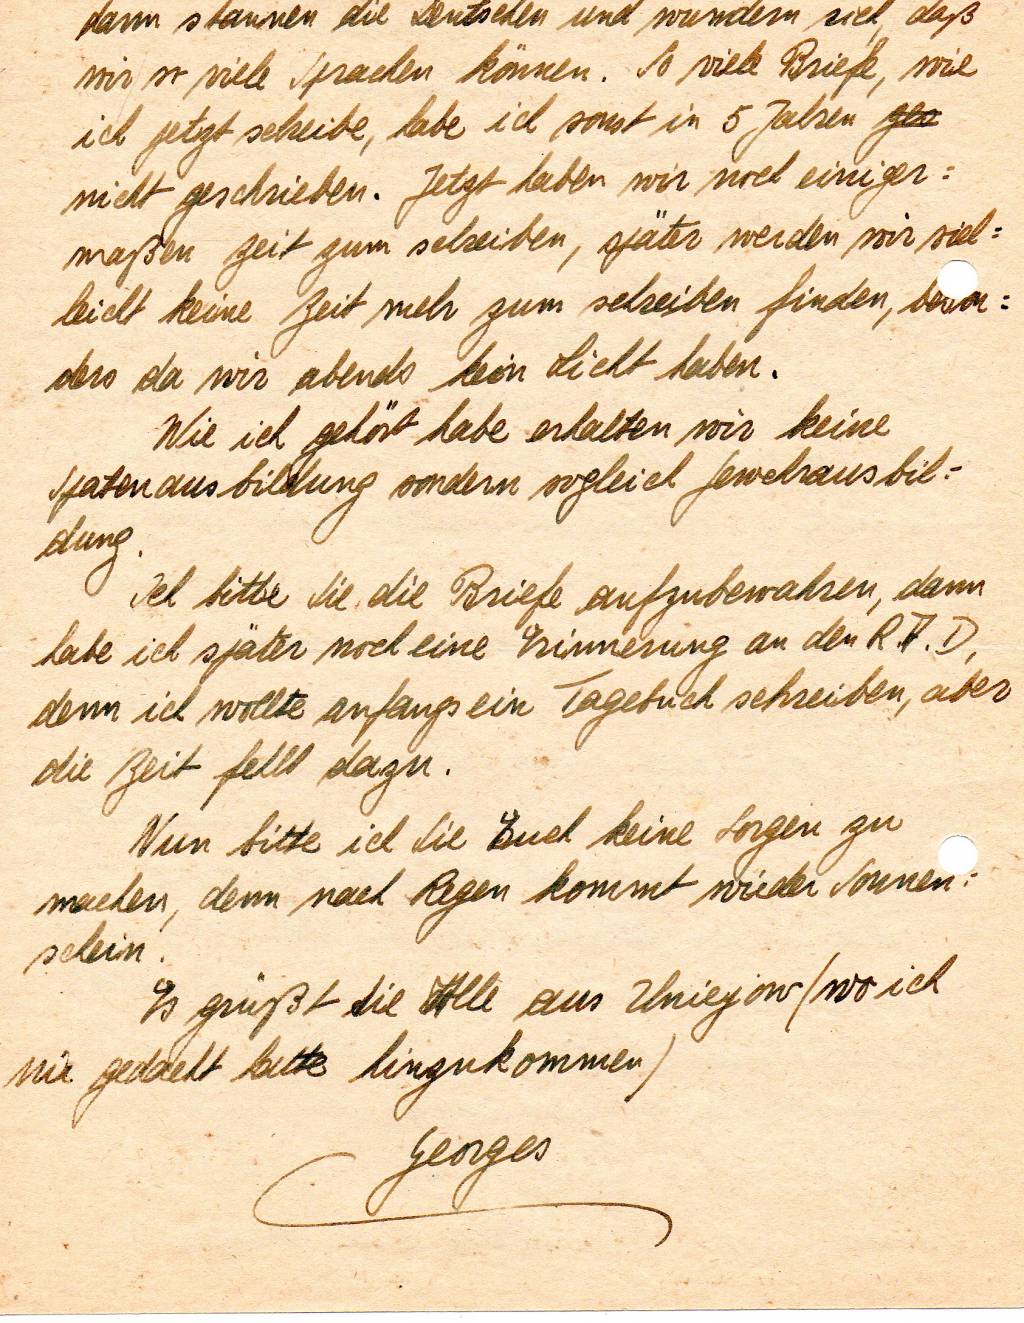 dann staunen die Deutschen und wundern sich, daß
wir so viele Sprachen können. So viele Briefe, wie
ich jetzt schreibe, habe ich sonst in 5 Jahren ges
nicht geschrieben. Jetzt haben wir noch einiger=
maßen Zeit zum schreiben, später werden wir viel=
leicht keine Zeit mehr zum schreiben finden, beson=
ders da wir abends kein Licht haben.
Wie ich gehört habe erhalten wir keine
Spatenausbildung sondern sogleich Gewehrausbil=
dung.
Ich bitte Sie die Briefe aufzubewahren, dann
habe ich später noch eine Erinnerung an den R.A.D,
denn ich wollte anfangs ein Tagebuch schreiben, aber
die Zeit fehlt dazu.
Nun bitte ich Sie Euch keine Sorgen zu
machen, denn nach Regen kommt wieder Sonnen=
schein.
Es grüßt Sie Alle aus Uniejow (wo ich
nie gedacht hatte hinzukommen)
Georges